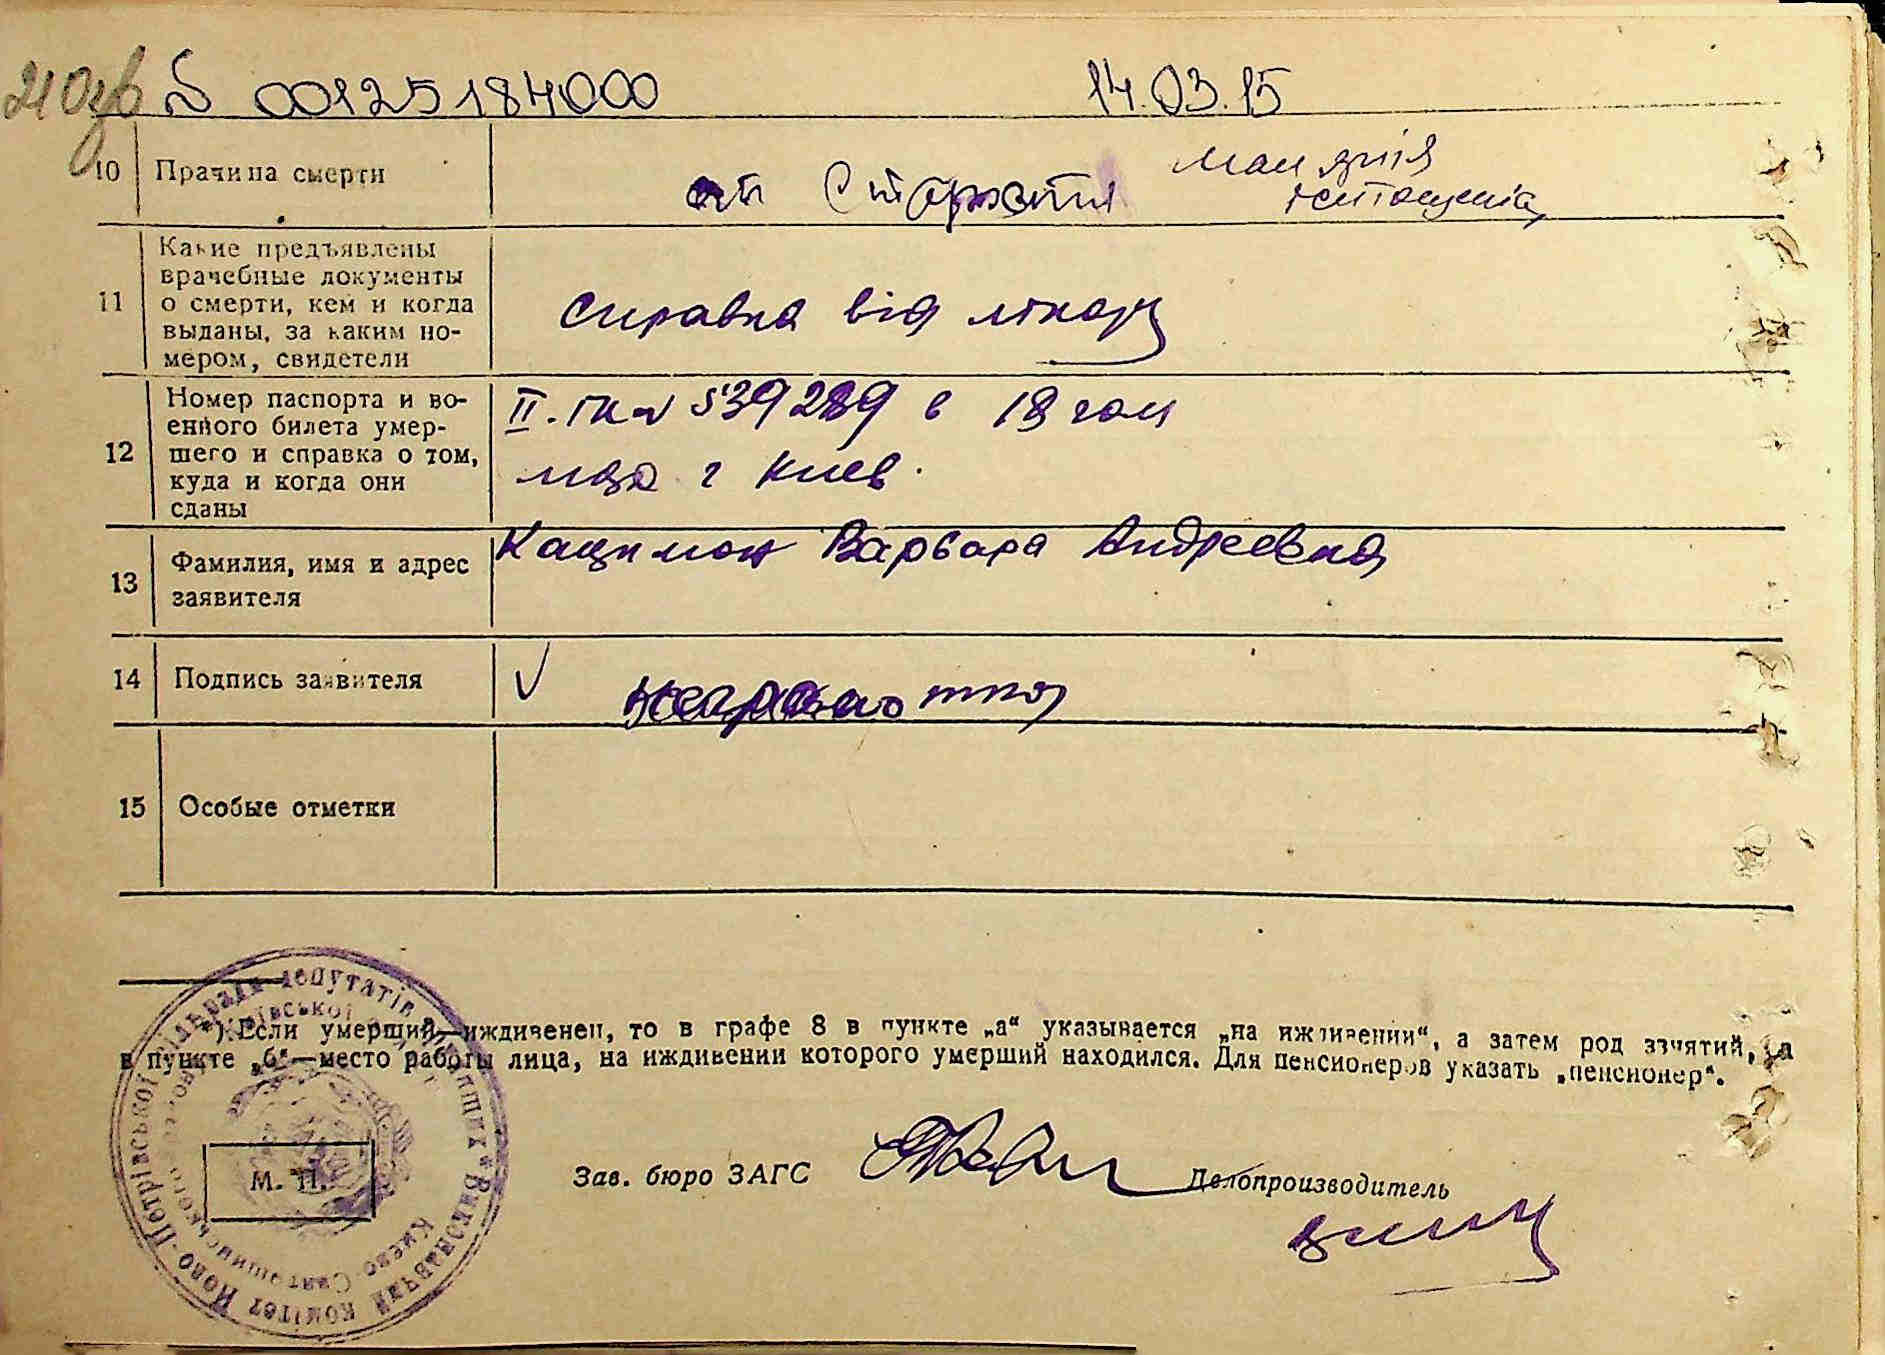 № 00125184000 14.03.15
10 Причина смерти от старости
11 Какие предъявлены
врачебные документы
о смерти, кем и когда
выданы, за каким но-
мером, свидетели
справка від лікаря
12 Номер паспорта и во-
енного билета умер-
шего и справка о том,
куда и когда они
сданы
II-ПК № 539289 в 18 гом
г Киев.
13 Фамилия, имя и адрес
заявителя
Кацимон Варвара Андреевна
14 Подпись заявителя V неграмотна
15 Особые отметки
*) Если умерший—иждивенец, то в графе 8 в пункте „а“ указывается „на иждивении“, а затем род занятий, а
в пункте „б“—место работы лица, на иждивении которого умерший находился. Для пенсионеров указать „пенсионер“.
М. П.
Зав. бюро ЗАГС Делопроизводитель
Виконавчий комітет Ново-Петрівської сільради депутатів трудящих
Києво-Святошинського
Київської